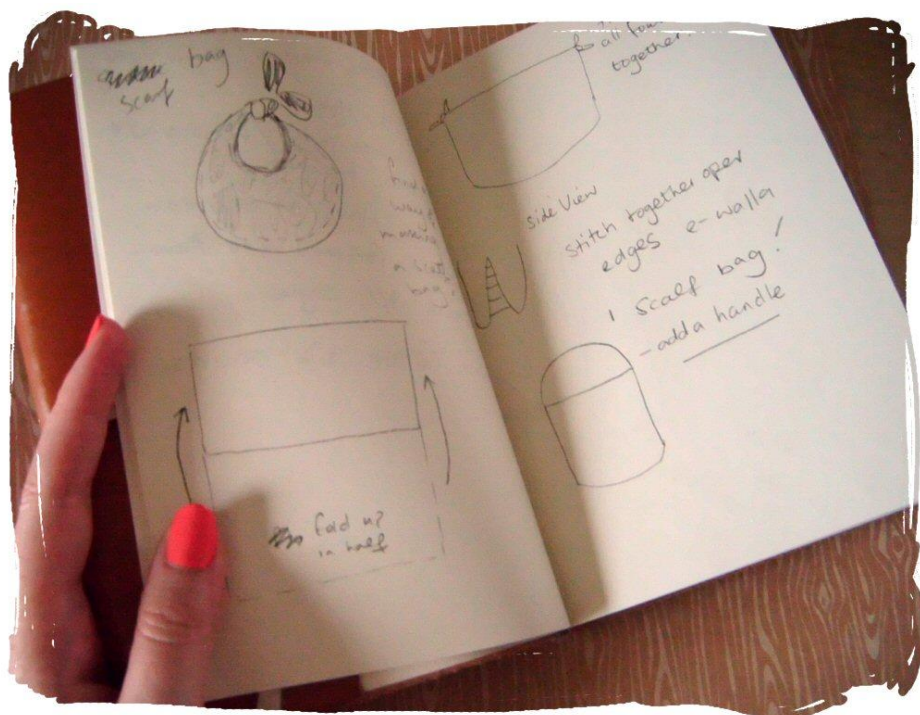 bag
scarf
fold up
in half
all four
together
side view
stitch together open
edges e-walla
1 scalf bag!
- add a handle